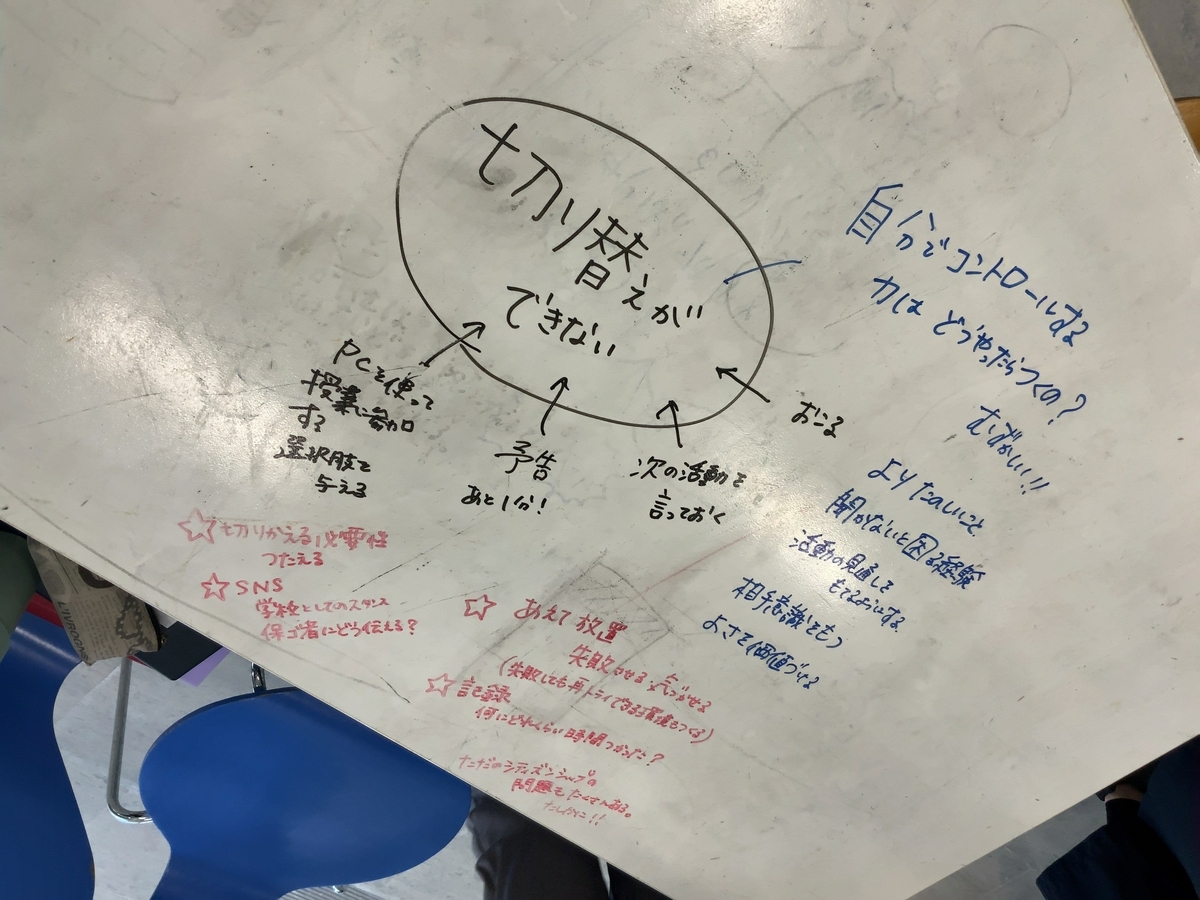 切り替えが
できない
PCを使って
授業に参加
する
選択肢を
与える
予告
あと1分!
次の活動を
言っておく
おこる
自分でコントロールする
力は どうやったらつくの?
むずかしい!!
よりたのしいこと
聞かないと困る経験
活動の見通しを
もてるようにする
相手意識をもつ
よさを価値づける
☆切りかえる必要性
つたえる
☆SNS
学校としてのスタンス
保ゴ者にどう伝える?
☆ あえて放置
失敗させる 気づかせる
(失敗しても再トライできる環境をつくる)
☆記録
何にどれくらい時間つかった?
ただのシティズンシップの
問題もたくさんある。
たしかに!!